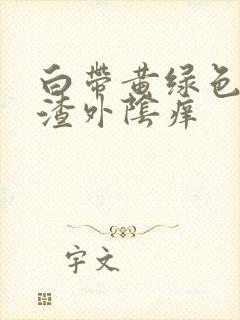 白带黄绿色
渣外陰痒
字文